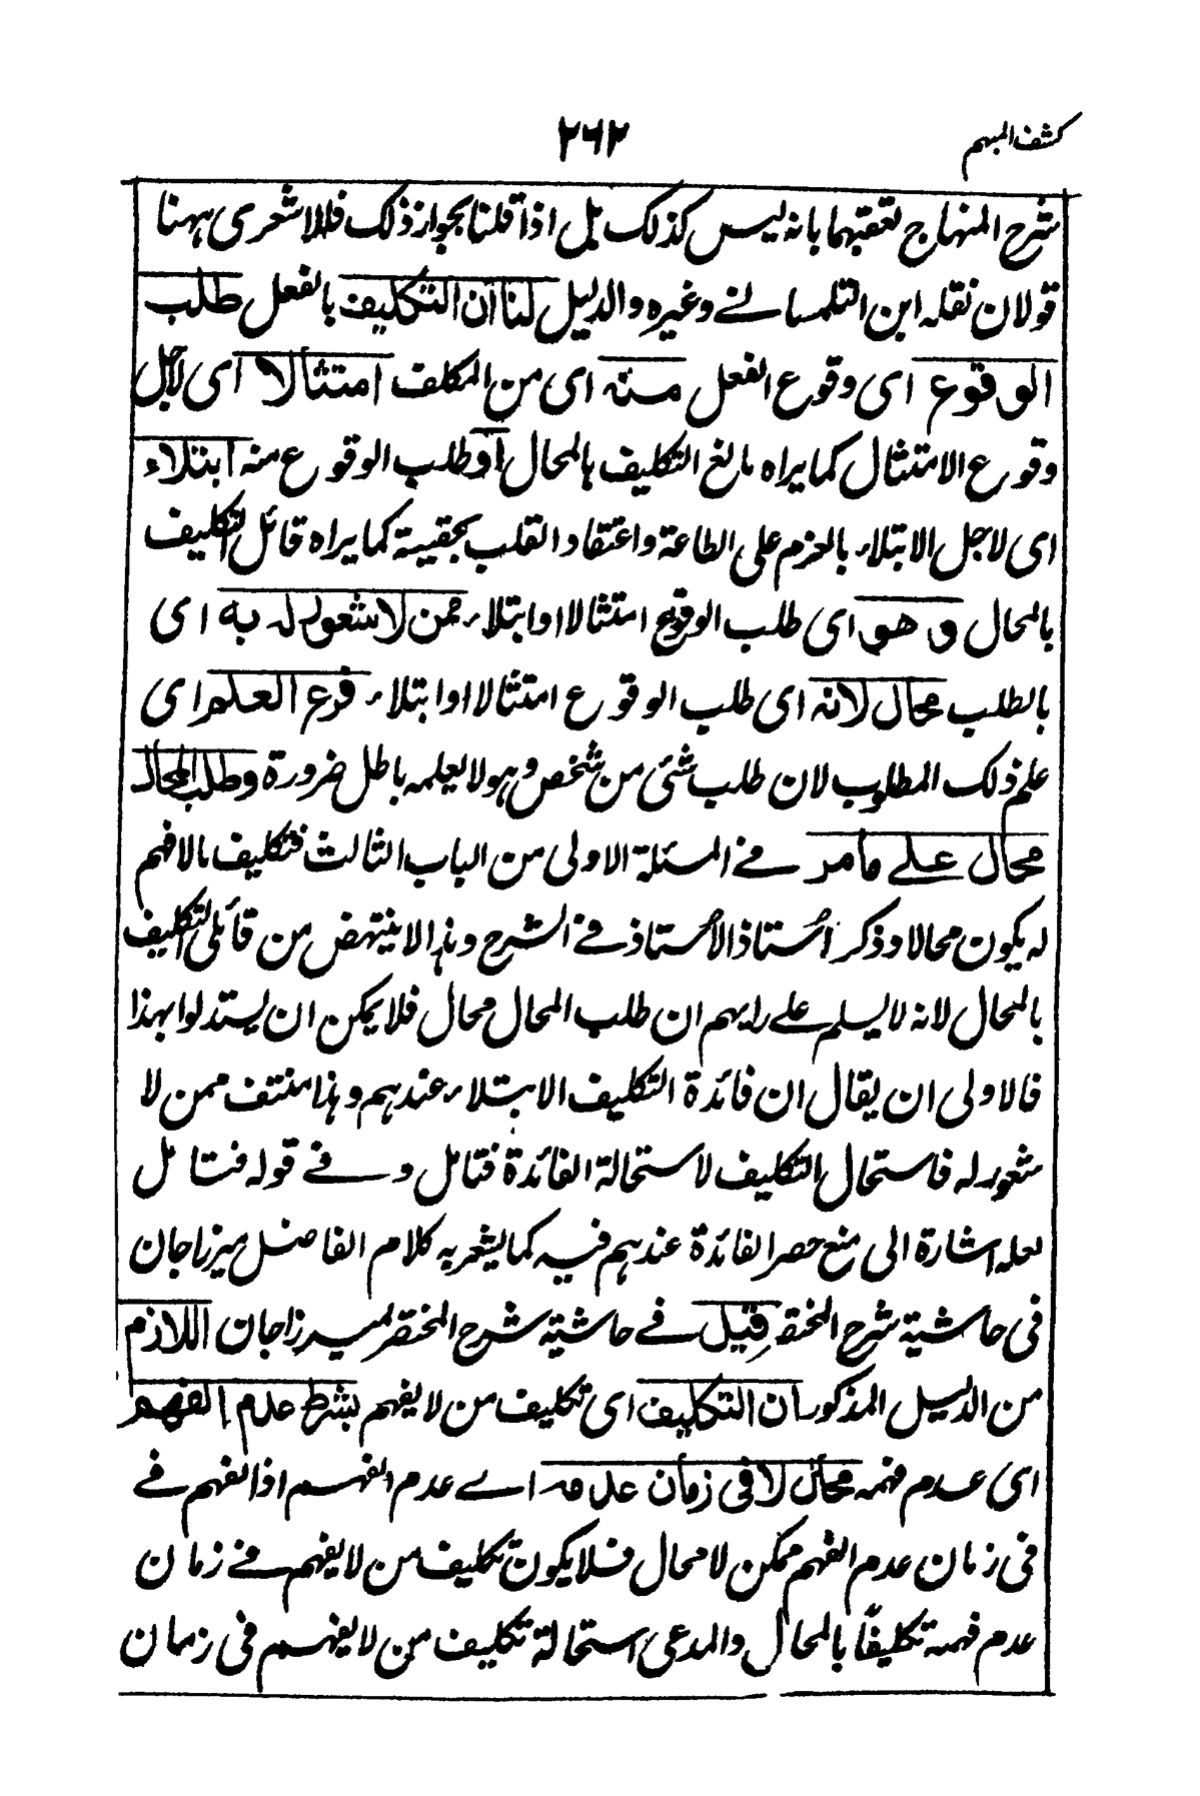 كشف المبهم
٢٦٢
شرح المنهاج تعقبهما بانه ليس كذلك بل اذا قلنا بجواز ذلك فللاشعرى ههنا
قولان نقله ابن التلمسانے وغيره والدليل لنا ان التكليف بالفعل طلب
الوقوع اى وقوع الفعل منه اى من المكلف امتثالا اى لاجل
وقوع الامتثال كما يراه مانع التكليف بالمحال او طلب الوقوع منه ابتلاء
اى لاجل الابتلاء بالعزم على الطاعة واعتقاد القلب بحقيته كما يراه قائل التكليف
بالمحال وهو اى طلب الوقوع امتثالا او ابتلاء ممن لا شعور له به اى
بالطلب محال لانه اى طلب الوقوع امتثالا او ابتلاء فرع العلم اى
علم ذلك المطلوب لان طلب شئى من شخص وهو لا يعلمه باطل ضرورة وطلب المحال
محال علے ما مر فے المسئلة الاولى من الباب الثالث فتكليف مالا فهم
له يكون محالا وذكر استاذ الاستاذ فے الشرح وهذا لا ينتهض من قائلى التكليف
بالمحال لانه لا يسلم علے رايهم ان طلب المحال محال فلا يمكن ان يستدلوا بهذا
فالاولى ان يقال ان فائدة التكليف الابتلاء عندهم وهذا منتف ممن لا
شعور له فاستحال التكليف لاستحالة الفائدة فتامل وفے قوله فتامل
لعله اشارة الى منع حصر الفائدة عندهم فيه كما يشعر به كلام الفاضل ميرزا جان
فى حاشية شرح المختصر قيل فے حاشية شرح المختصر لميرزا جان اللازم
من الدليل المذكور ان التكليف اى تكليف من لا يفهم بشرط عدم الفهم
اى عدم فهمه محال لا فى زمان عدمه اے عدم الفهم اذ الفهم فے
فى زمان عدم الفهم ممكن لا محال فلا يكون تكليف من لا يفهم فے زمان
عدم فهمه تكليفًا بالمحال والمدعى استحالة تكليف من لا يفهم فى زمان